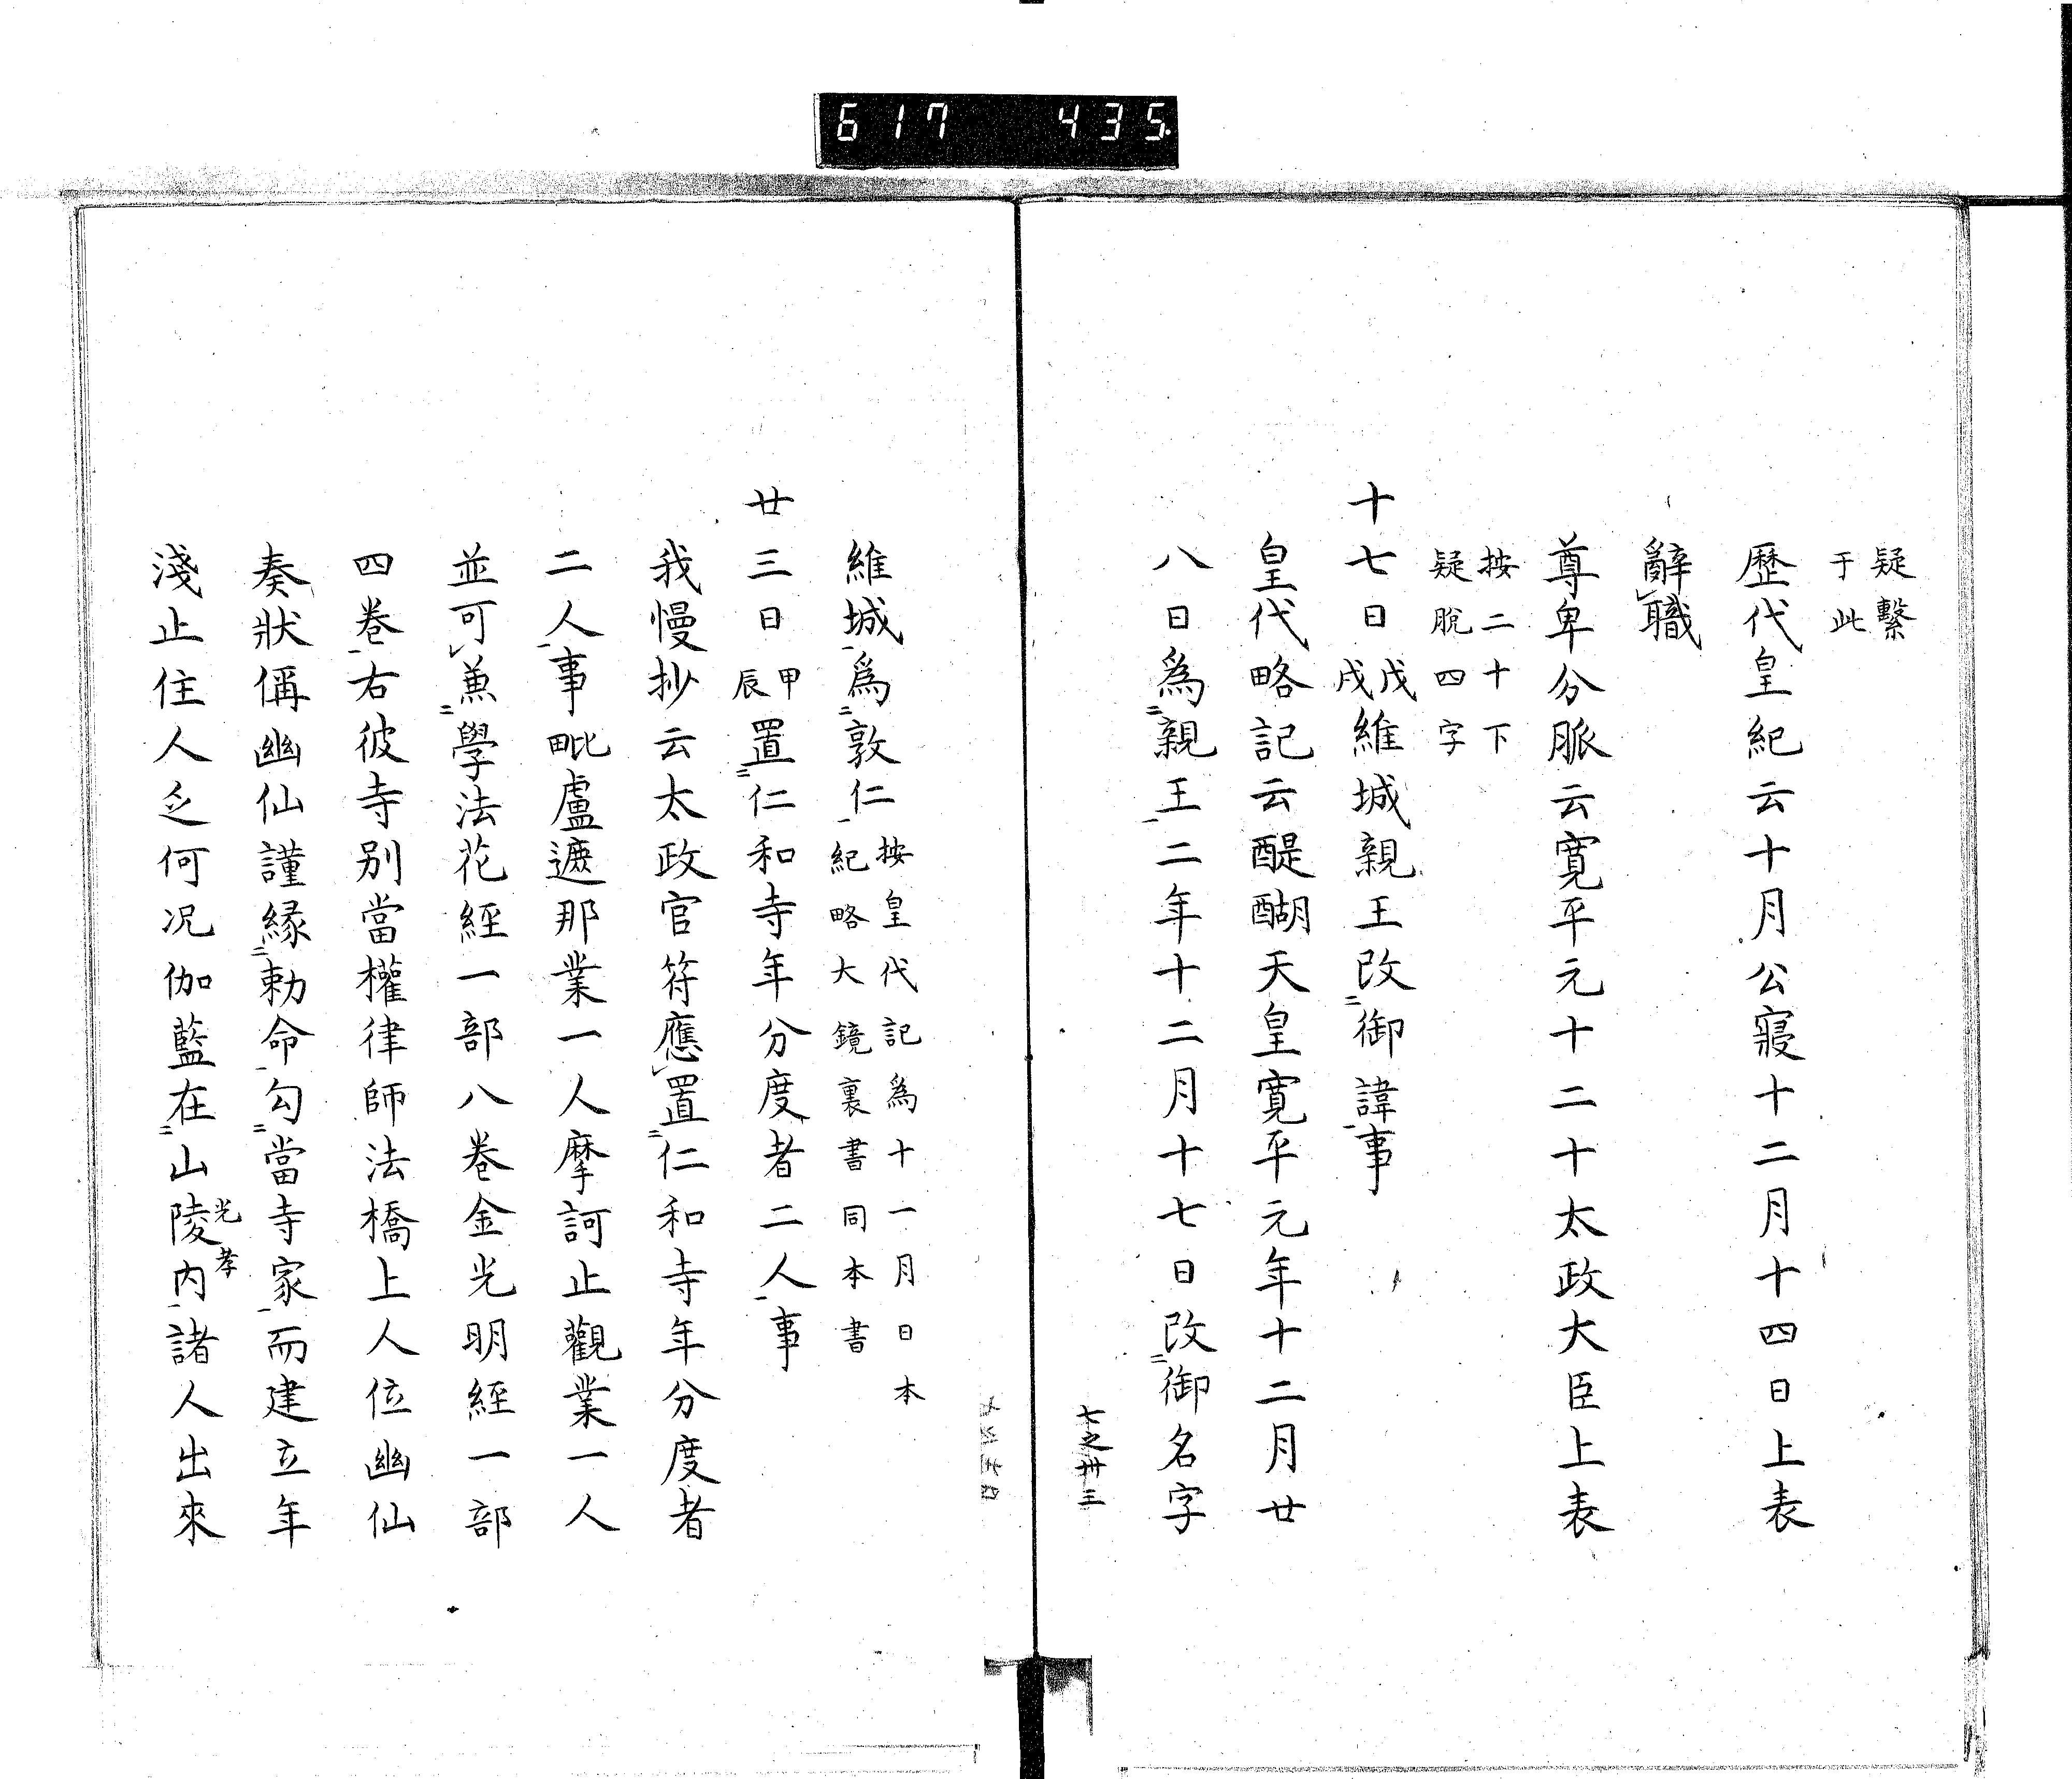 617 435
疑繫
于此
歷代皇紀云十月公寢十二月十四日上表
辭職
尊卑分脈云寛平元十二十太政大臣上表
按二十下
疑脫四字
十七日戊戌維城親王改御諱事
皇代略記云醍醐天皇寛平元年十二月廿
八日為親王二年十二月十七日改御名字
七之卅三
維城爲敦仁按皇代記爲十一月日本
紀略大鏡裏書同本書
廿三日甲辰置仁和寺年分度者二人事
我慢抄云太政官符應置仁和寺年分度者
二人事毗盧遮那業一人摩訶止觀業一人
並可兼學法花經一部八卷金光明經一部
四卷右彼寺別當權律師法橋上人位幽仙
奏狀偁幽仙謹緣勅命勾當寺家而建立年
淺止住人乏何况伽藍在山陵光孝內諸人出來